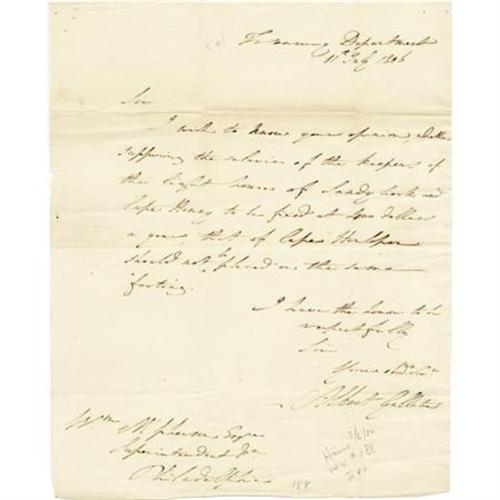 Treasury Department
11th July 1806
Sir
I wish to know your opinion, whether
supposing the salaries of the keepers of
the light houses of Sandy hook and
Cape Henry to be fixed at 400 dollars
a year, that of Cape Henlopen
should not be placed on the same
footing.
I have the honor to be
respectfully
Sir
Your obdt. Servt.
Albert Gallatin
Wm McPherson Esqre
Superintendent &a
Philadelphia